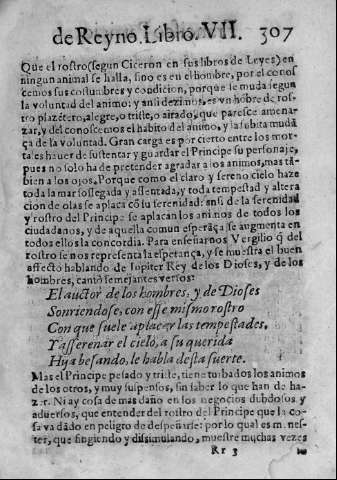 de Reyno. Libro. VII. 307
Que el rostro (segun Ciceron en sus libros de Leyes) en
ningun animal se halla, sino es en el hombre, por el conos
cemos sus costumbres y condicion, porque se muda segun
la voluntad del animo: y ansi dezimos, es vn hõbre de ros-
tro plazétero, alegre, o triste, o airado, que paresce amena-
zar, y del conoscemos el habito del animo, y la subita mudã
ça de la voluntad. Gran carga es por cierto entre los mor-
tales hauer de sustentar y guardar el Principe su personaje,
pues no solo ha de pretender agradar a los animos, mas tã-
bien a los ojos. Porque como el claro y sereno cielo haze
toda la mar sossegada y assentada, y toda tempestad y altera
cion de olas se aplaca cõ su serenidad: ansi de la serenidad
y rostro del Principe se aplacan los animos de todos los
ciudadanos, y de aquella comun esperãça se augmenta en
todos ellos la concordia. Para enseñarnos Vergilio q̃ del
rostro se nos representa la esperança, y se muestra el buen
affecto hablando de Iupiter Rey de los Dioses, y de los
hombres, canto semejantes versos:
El auctor de los hombres, y de Dioses
Sonriendose, con esse mismo rostro
Con que suele aplacar las tempestades,
Y asserenar el cielo, a su querida
Hija besando, le habla desta suerte.
Mas el Principe pesado y triste, tiene turbados los animos
de los otros, y muy suspensos, sin saber lo que han de ha-
zer. Ni ay cosa de mas daño en los negocios dubdosos y
aduersos, que entender del rostro del Principe que la co-
sa va dado en peligro de despeñarse: por lo qual es m. nes-
ter, que fingiendo y dissimulando, muestre muchas vezes
Rr 3